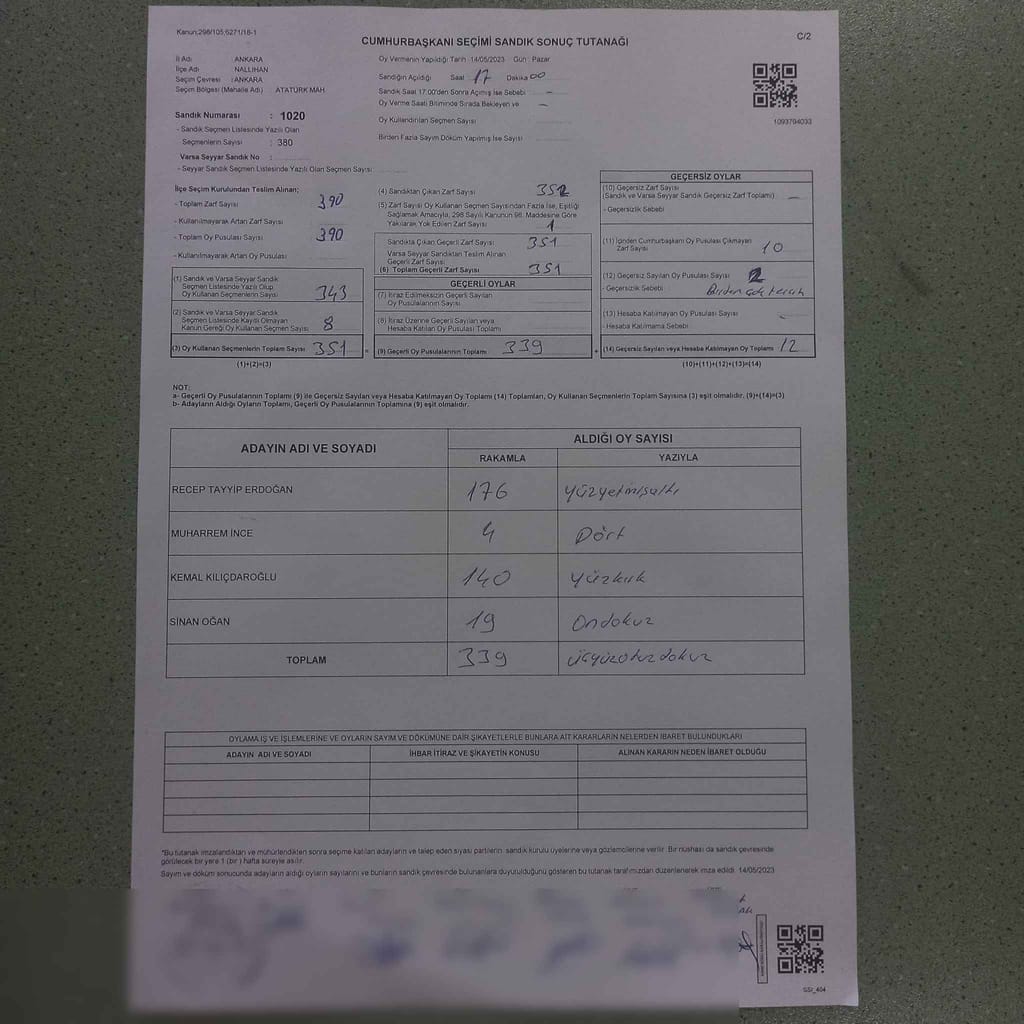 Kanun;298/105;6271/18-1
C/2
CUMHURBAŞKANI SEÇİMİ SANDIK SONUÇ TUTANAĞI
İl Adı : ANKARA
İlçe Adı : NALLIHAN
Seçim Çevresi : ANKARA
Seçim Bölgesi (Mahalle Adı) ATATÜRK MAH
Oy Vermenin Yapıldığı Tarih 14/05/2023 Gün : Pazar
Sandığın Açıldığı Saat 17 Dakika 00
Sandık Saat 17.00'den Sonra Açılmış İse Sebebi -
Oy Verme Saati Bitiminde Sırada Bekleyen ve -
Oy Kullandırılan Seçmen Sayısı
Birden Fazla Sayım Döküm Yapılmış İse Sayısı
1093794033
Sandık Numarası : 1020
- Sandık Seçmen Listesinde Yazılı Olan
- Seçmenlerin Sayısı : 380
Varsa Seyyar Sandık No :
- Seyyar Sandık Seçmen Listesinde Yazılı Olan Seçmen Sayısı
İlçe Seçim Kurulundan Teslim Alınan;
- Toplam Zarf Sayısı 390
- Kullanılmayarak Artan Zarf Sayısı
- Toplam Oy Pusulası Sayısı 390
- Kullanılmayarak Artan Oy Pusulası
(1) Sandık ve Varsa Seyyar Sandık
Seçmen Listesinde Yazılı Olup
Oy Kullanan Seçmenlerin Sayısı 343
(2) Sandık ve Varsa Seyyar Sandık
Seçmen Listesinde Kayıtlı Olmayan
Kanun Gereği Oy Kullanan Seçmen Sayısı 8
(3) Oy Kullanan Seçmenlerin Toplam Sayısı 351 =
(1)+(2)=(3)
(4) Sandıktan Çıkan Zarf Sayısı 352
(5) Zarf Sayısı Oy Kullanan Seçmen Sayısından Fazla İse, Eşitliği
Sağlamak Amacıyla, 298 Sayılı Kanunun 98. Maddesine Göre
Yakılarak Yok Edilen Zarf Sayısı 1
Sandıkta Çıkan Geçerli Zarf Sayısı 351
Varsa Seyyar Sandıktan Teslim Alınan
Geçerli Zarf Sayısı
(6) Toplam Geçerli Zarf Sayısı 351
GEÇERLİ OYLAR
(7) İtiraz Edilmeksizin Geçerli Sayılan
Oy Pusulalarının Sayısı
(8) İtiraz Üzerine Geçerli Sayılan veya
Hesaba Katılan Oy Pusulası Toplamı
(9) Geçerli Oy Pusulalarının Toplamı 339 +
GEÇERSİZ OYLAR
(10) Geçersiz Zarf Sayısı
(Sandık ve Varsa Seyyar Sandık Geçersiz Zarf Toplamı) -
- Geçersizlik Sebebi
(11) İçinden Cumhurbaşkanı Oy Pusulası Çıkmayan
Zarf Sayısı 10
(12) Geçersiz Sayılan Oy Pusulası Sayısı 2
- Geçersizlik Sebebi : Birden çok tercih
(13) Hesaba Katılmayan Oy Pusulası Sayısı -
- Hesaba Katılmama Sebebi
(14) Geçersiz Sayılan veya Hesaba Katılmayan Oy Toplamı 12
(10)+(11)+(12)+(13)=(14)
NOT:
a- Geçerli Oy Pusulalarının Toplamı (9) ile Geçersiz Sayılan veya Hesaba Katılmayan Oy Toplamı (14) Toplamları, Oy Kullanan Seçmenlerin Toplam Sayısına (3) eşit olmalıdır. (9)+(14)=(3)
b- Adayların Aldığı Oyların Toplamı, Geçerli Oy Pusulalarının Toplamına (9) eşit olmalıdır.
ADAYIN ADI VE SOYADI
ALDIĞI OY SAYISI
RAKAMLA YAZIYLA
RECEP TAYYİP ERDOĞAN 176 yüzyetmişaltı
MUHARREM İNCE 4 Dört
KEMAL KILIÇDAROĞLU 140 yüzkırk
SİNAN OĞAN 19 Ondokuz
TOPLAM 339 üçyüzotuzdokuz
OYLAMA İŞ VE İŞLEMLERİNE VE OYLARIN SAYIM VE DÖKÜMÜNE DAİR ŞİKAYETLERLE BUNLARA AİT KARARLARIN NELERDEN İBARET BULUNDUKLARI
ADAYIN ADI VE SOYADI İHBAR İTİRAZ VE ŞİKAYETİN KONUSU ALINAN KARARIN NEDEN İBARET OLDUĞU
*Bu tutanak imzalandıktan ve mühürlendikten sonra seçime katılan adayların ve talep eden siyasi partilerin sandık kurulu üyelerine veya gözlemcilerine verilir. Bir nüshası da sandık çevresinde
görülecek bir yere 1 (bir) hafta süreyle asılır.
Sayım ve döküm sonucunda adayların aldığı oyların sayılarını ve bunların sandık çevresinde bulunanlara duyurulduğunu gösteren bu tutanak tarafımızdan düzenlenerek imza edildi. 14/05/2023
SSI_404